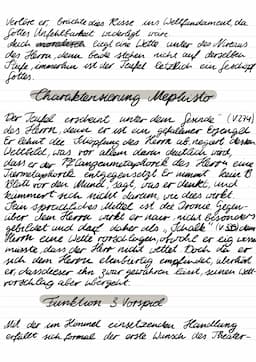 Verlöre er, brächte dies Risse ins Weltfundament, da
Gottes Unfehlbarkeit widerlegt wäre.
Auch liegt eine Wette unter des Niveaus
des Herrn, denn beide stehen nicht auf derselben
Stufe, immerhin ist der Teufel letztlich ein Geschöpf
Gottes.
Charakterisierung Mephisto
Der Teufel erscheint unter dem "Gesinde" (V 274)
des Herrn, denn er ist ein gefallener Erzengel.
Er lehnt die Schöpfung des Herrn ab, negiert dessen
Weltbild, was vor allem darin deutlich wird,
dass er der Pflanzenmetaphorik des Herrn eine
Tiermetaphorik entgegensetzt. Er nimmt kein
Blatt vor den Mund, sagt, was er denkt, und
kümmert sich nicht darum, wie dies wirkt.
Sein sprachliches Mittel ist die Ironie. Gegen-
über dem Herrn wirkt er naiv, nicht besonders
gebildet und darf daher als "Schalk" (V 339) dem
Herrn eine Wette vorschlagen, obwohl er eig. wissen
müsste, dass der Herr nicht wettet. Doch da er
sich dem Herrn ebenbürtig empfindet, überhört
er, dass dieser ihn zwar gewähren lässt, seinen Wett-
vorschlag aber übergeht.
Funktion & Vorspiel
Mit der im Himmel einsetzenden Handlung
erfüllt sich formal der erste Wunsch des Theater-